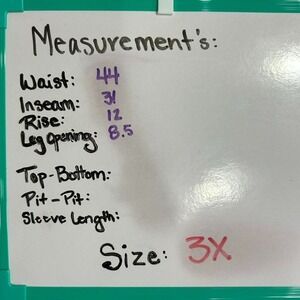 Measurement's:
Waist: 44
Inseam: 31
Rise: 12
Leg Opening: 8.5
Top-Bottom:
Pit-Pit:
Sleeve Length:
Size: 3X